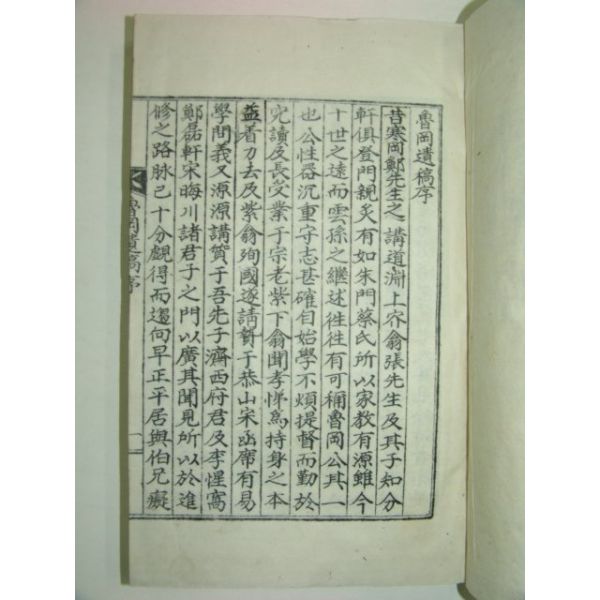 魯岡遺稿序
昔寒岡鄭先生之講道淵上齊翁張先生及其子知分
軒俱登門親炙有如朱門蔡氏所以家教有源雖今
十世之遠而雲孫之繼述徃徃有可稱魯岡公其一
也公性器沉重守志甚確自始學不煩提督而勤於
究讀及長受業于宗老紫下翁聞孝悌爲持身之本
益着力去及紫翁殉國遂請贄于恭山宋函席有易
學問義又源源講質于吾先子濟西府君及李惺窩
鄭磊軒宋晦川諸君子之門以廣其聞見所以於進
修之路脉已十分覰得而趨向早正平居與伯兄癡
魯岡遺稿序
一